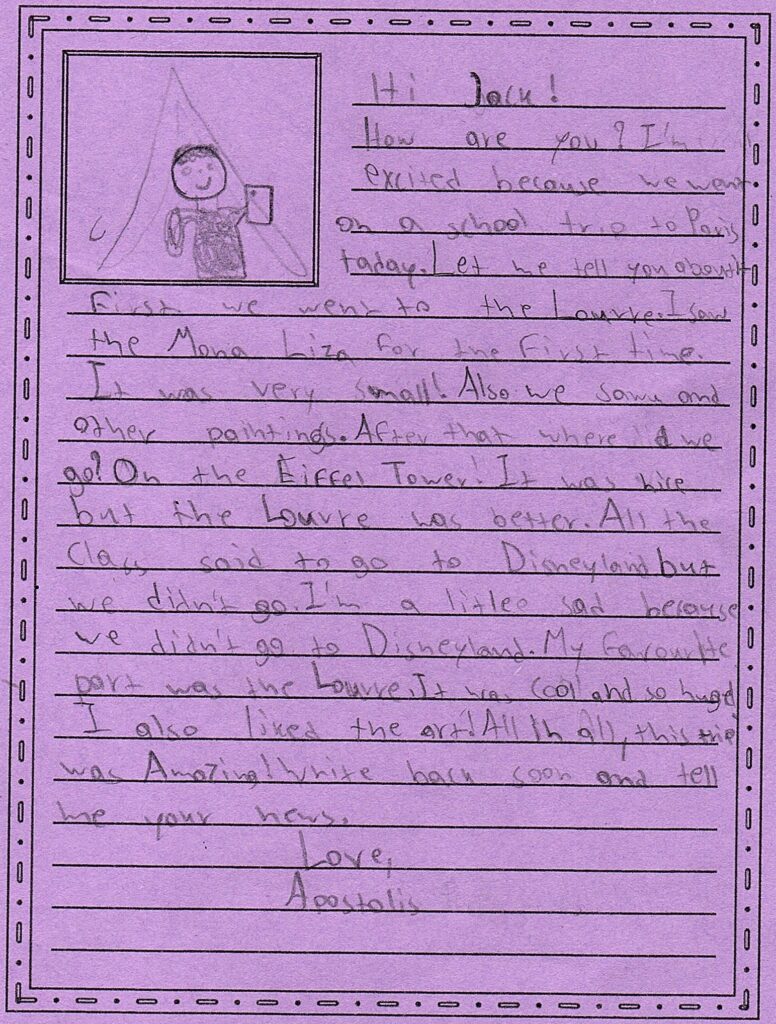 Hi Jack!
How are you? I'm
excited because we went
on a school trip to Paris
taday. Let me tell you about it
First we went to the Louvre. I saw
the Mona Liza for the first time.
It was very small! Also we saw and
other paintings. After that where d we
go? On the Eiffel Tower! It was nice
but the Louvre was better. All the
Class said to go to Disneyland but
we didn't go. I'm a litlee sad because
we didn't go to Disneyland. My favourite
part was the Louvre. It was cool and so huge
I also liked the art! All in all, this trip
was Amazing! Write back soon and tell
me your news.
Love,
Apostolis